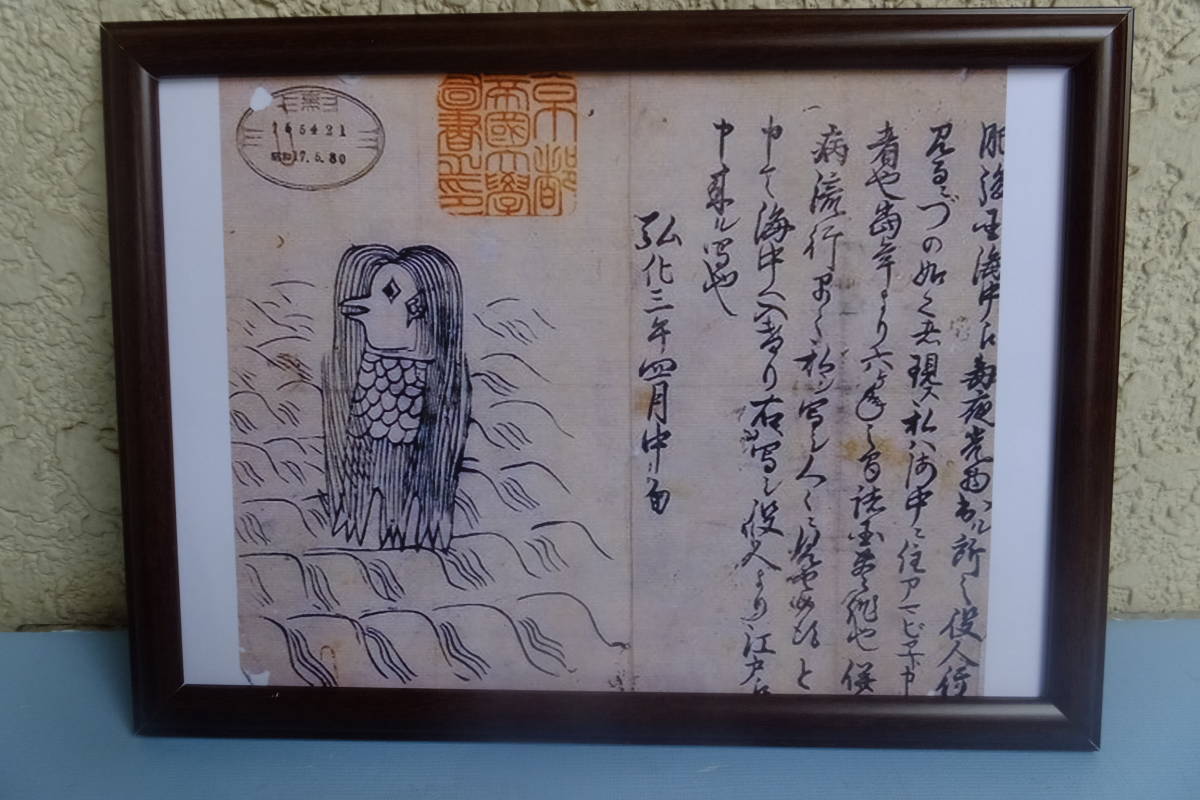 肥後国海中江毎夜光物出ル所之役人行
見るニづの如く者現ス私ハ海中ニ住アマビヱト申
者也當年より六ヶ年之間諸国豊作也併
病流行早々私シ写シ人々ニ見せ候得と
申て海中へ入けり右写シ役人より江戸江
申来ル写也
弘化三年四月中旬
京都
帝國大學
圖書之印
165421
昭和17.5.30